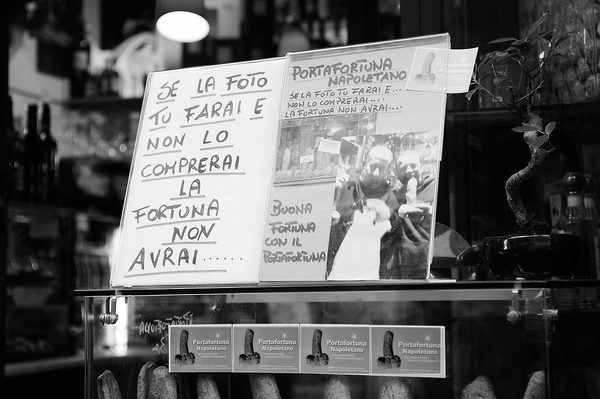 SE LA FOTO
TU FARAI E
NON LO
COMPRERAI
LA
FORTUNA
NON
AVRAI......
PORTAFORTUNA
NAPOLETANO
SE LA FOTO TU FARAI E...
NON LO COMPRERAI....
LA FORTUNA NON AVRAI...
BUONA
FORTUNA
CON IL
PORTAFORTUNA
PORTAFORTUNA
Portafortuna
Napoletano
Portafortuna
Napoletano
Portafortuna
Napoletano
Portafortuna
Napoletano
Portafortuna
Napoletano